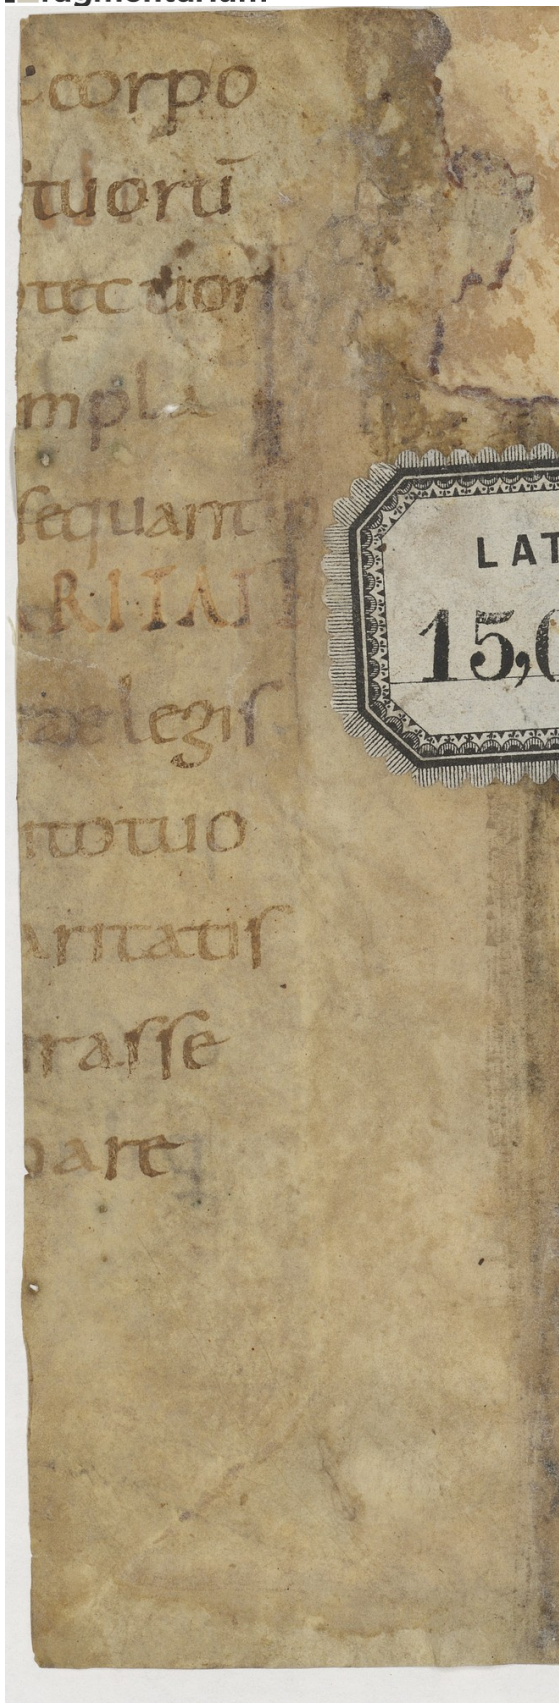 corpo
tuorū
tection
mpla
sequant
RITAT
legis
totuo
aritatis
rasse
are
LAT
15,0